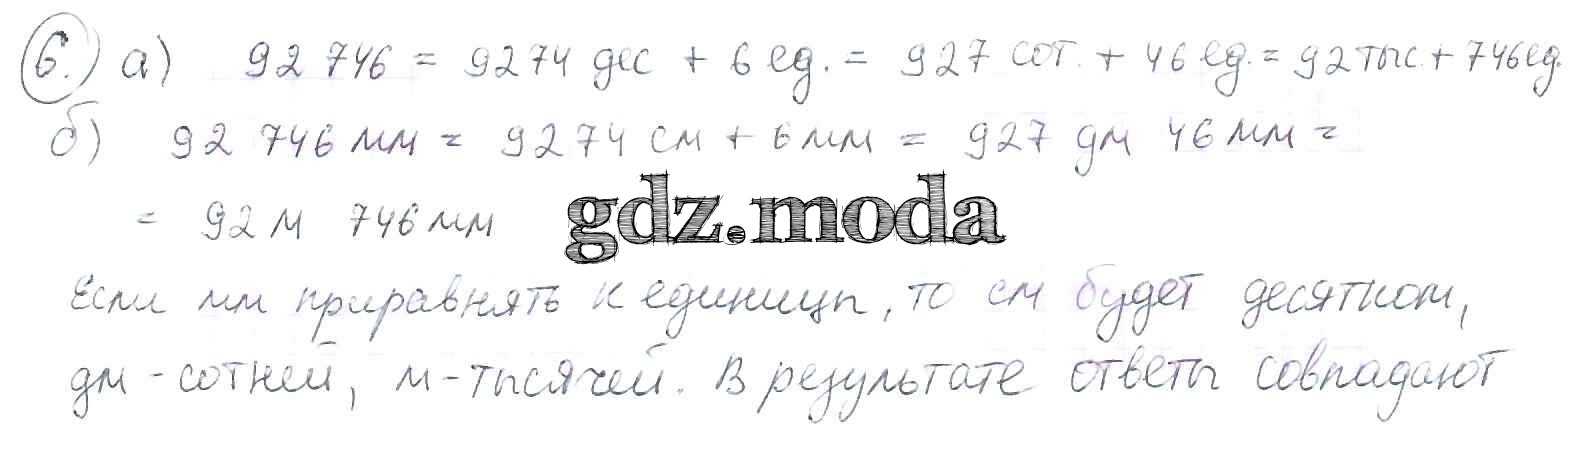 6. а) 92 746 = 9274 дес + 6 ед. = 927 сот. + 46 ед. = 92 тыс. + 746 ед.
б) 92 746 мм = 9274 см + 6 мм = 927 дм 46 мм =
= 92 м 746 мм gdz.moda
Если мм приравнять к единицп, то см будет десятком,
дм - сотней, м - тысячей. В результате ответы совпадают